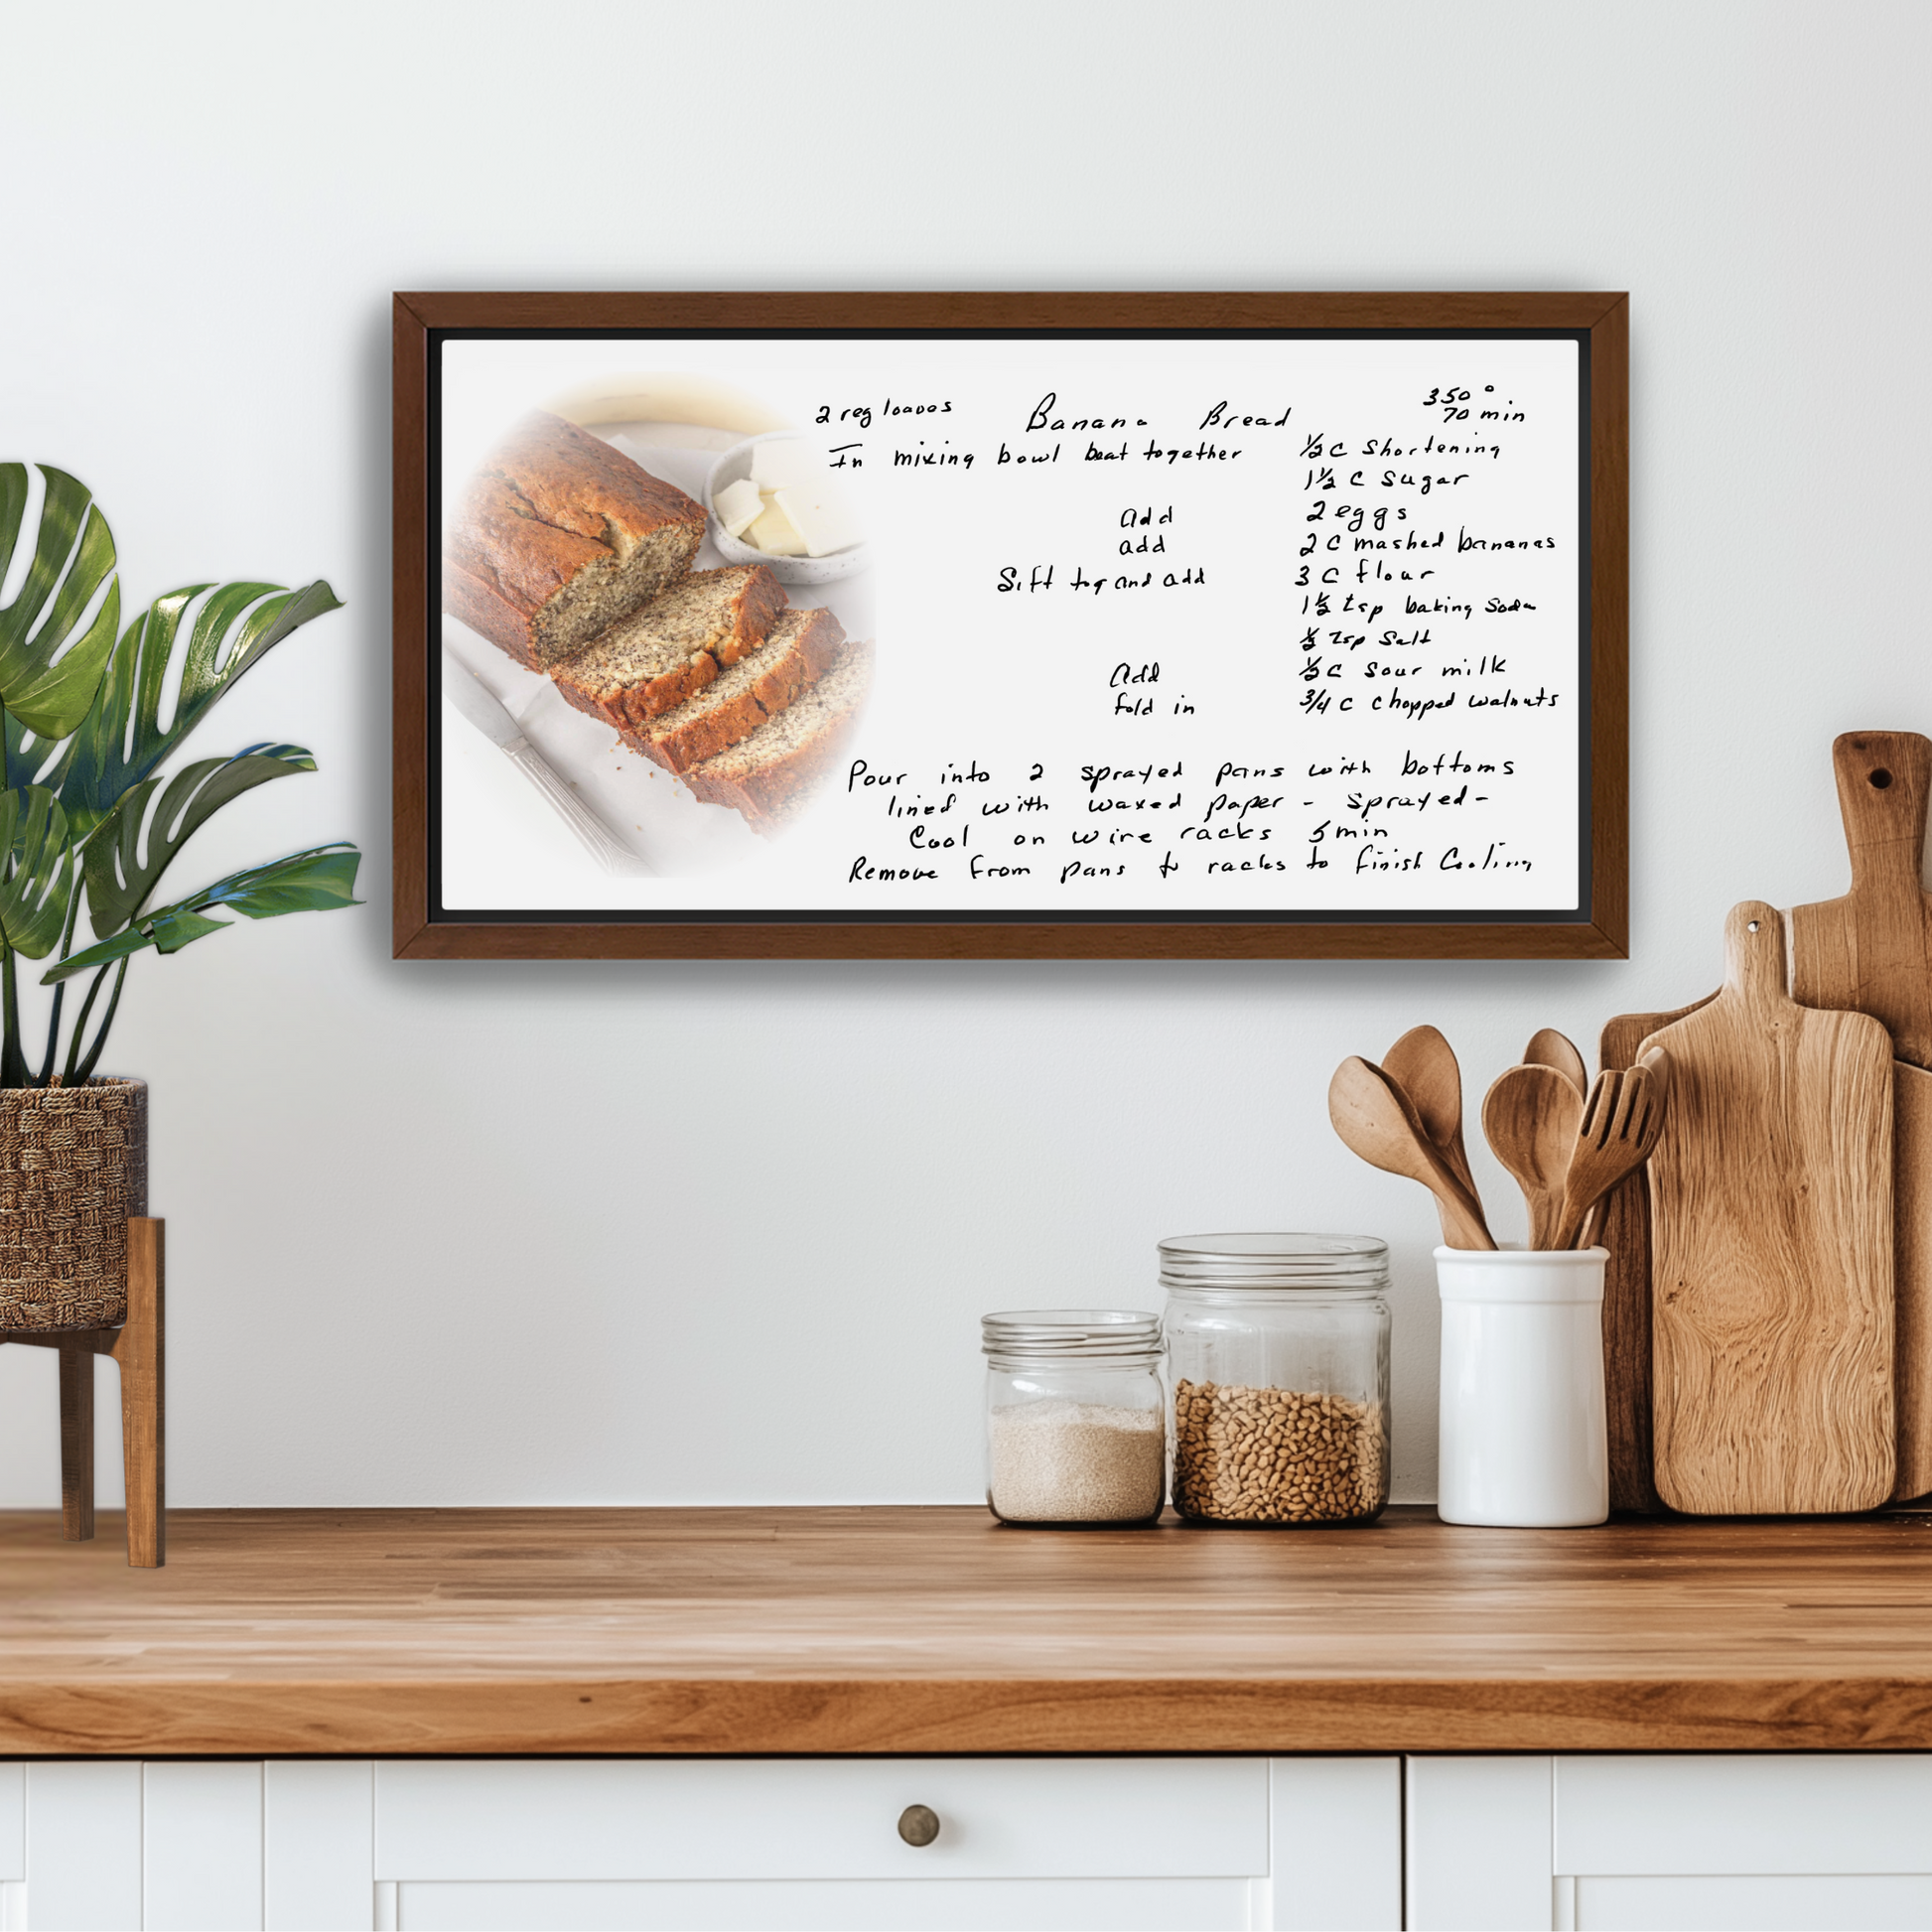 2 reg loaves Banana Bread 350°
70 min
In mixing bowl beat together ½ c Shortening
1½ c Sugar
add 2 eggs
add 2 c mashed bananas
Sift tog and add 3 c flour
1½ tsp baking soda
½ tsp Salt
Add ½ c Sour milk
fold in 3/4 c chopped walnuts
Pour into 2 sprayed pans with bottoms
lined with waxed paper - sprayed -
Cool on wire racks 5 min
Remove from pans to racks to finish Cooling